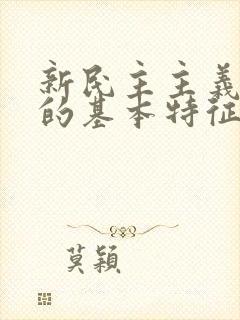 新民主主義
的基本特征
莫穎